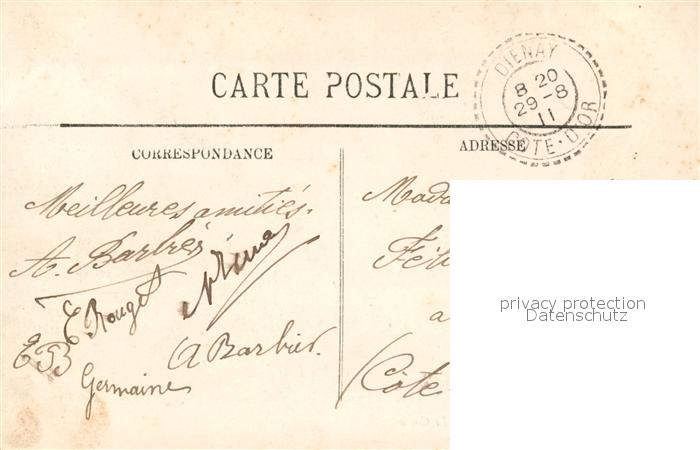 CARTE POSTALE
DIENAY
8 20
29-8
11
COTE-D'OR
CORRESPONDANCE
ADRESSE
Meilleures amitiés.
A. Barbier
E Rouget
EB
A Barbier.
Germaine
Mada
Féli
a
(Côte
privacy protection
Datenschutz